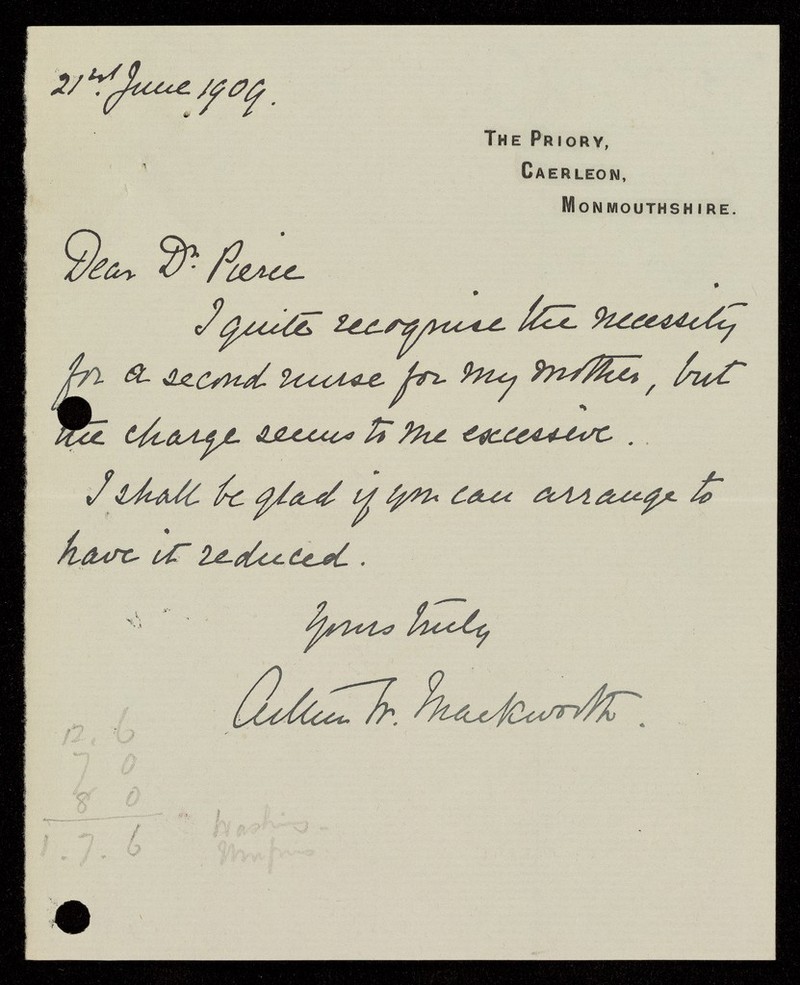 21st June 1909.
THE PRIORY,
CAERLEON,
MONMOUTHSHIRE.
Dear Dr. Pierce
I quite recognise the necessity
for a second nurse for my mother, but
the charge seems to me excessive.
I shall be glad if you can arrange to
have it reduced.
Yours truly
Arthur W. Mackworth.
12. 6
7 0
8 0
1. 7. 6
Washing